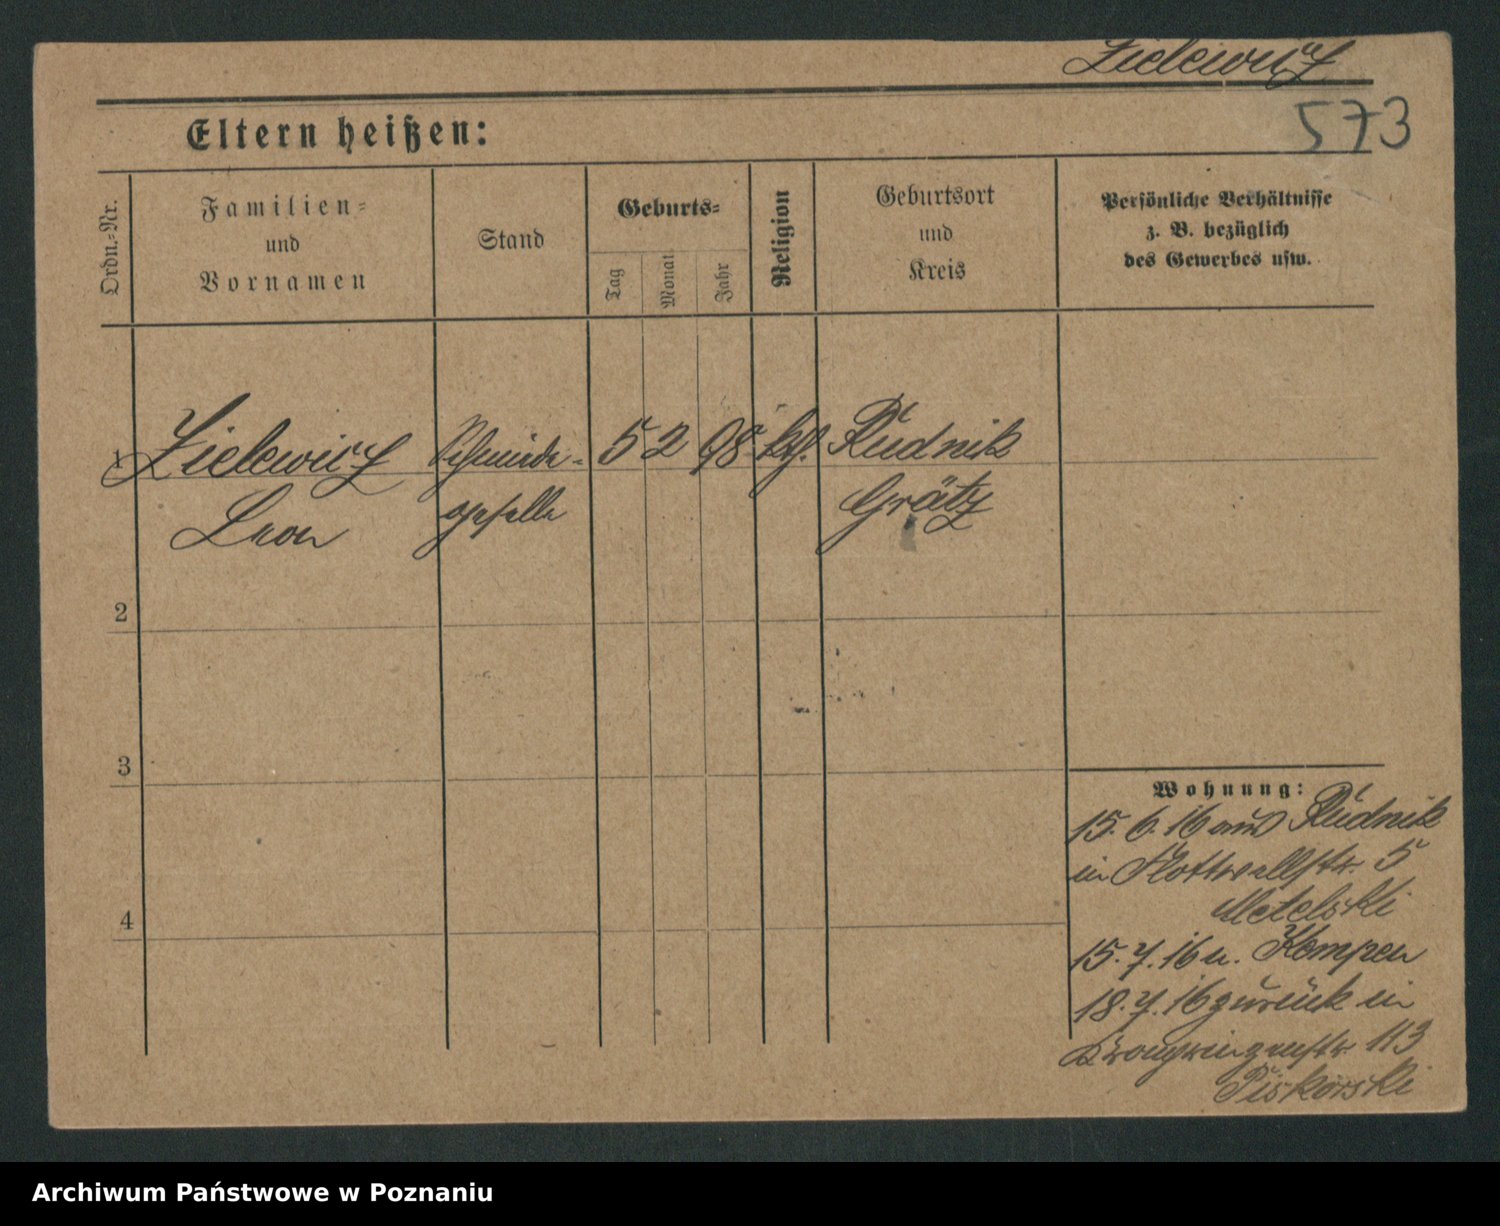 Zielewicz
573
Eltern heißen:
Ordn.-Nr.
Familien-
und
Vornamen
Stand
Geburts-
Tag
Monat
Jahr
Religion
Geburtsort
und
Kreis
Persönliche Verhältnisse
z. B. bezüglich
des Gewerbes usw.
1 Zielewicz Schmiede- 5 2 98 kth. Rudnik
Leon geselle Grätz
2
3
4
Wohnung:
15. 6. 16 aus Rudnik
in Flottwellstr. 5
Metelski
15. 7. 16 n. Kempen
18. 7. 16 zurück in
Kronprinzenstr. 113
Piskorski
Archiwum Państwowe w Poznaniu